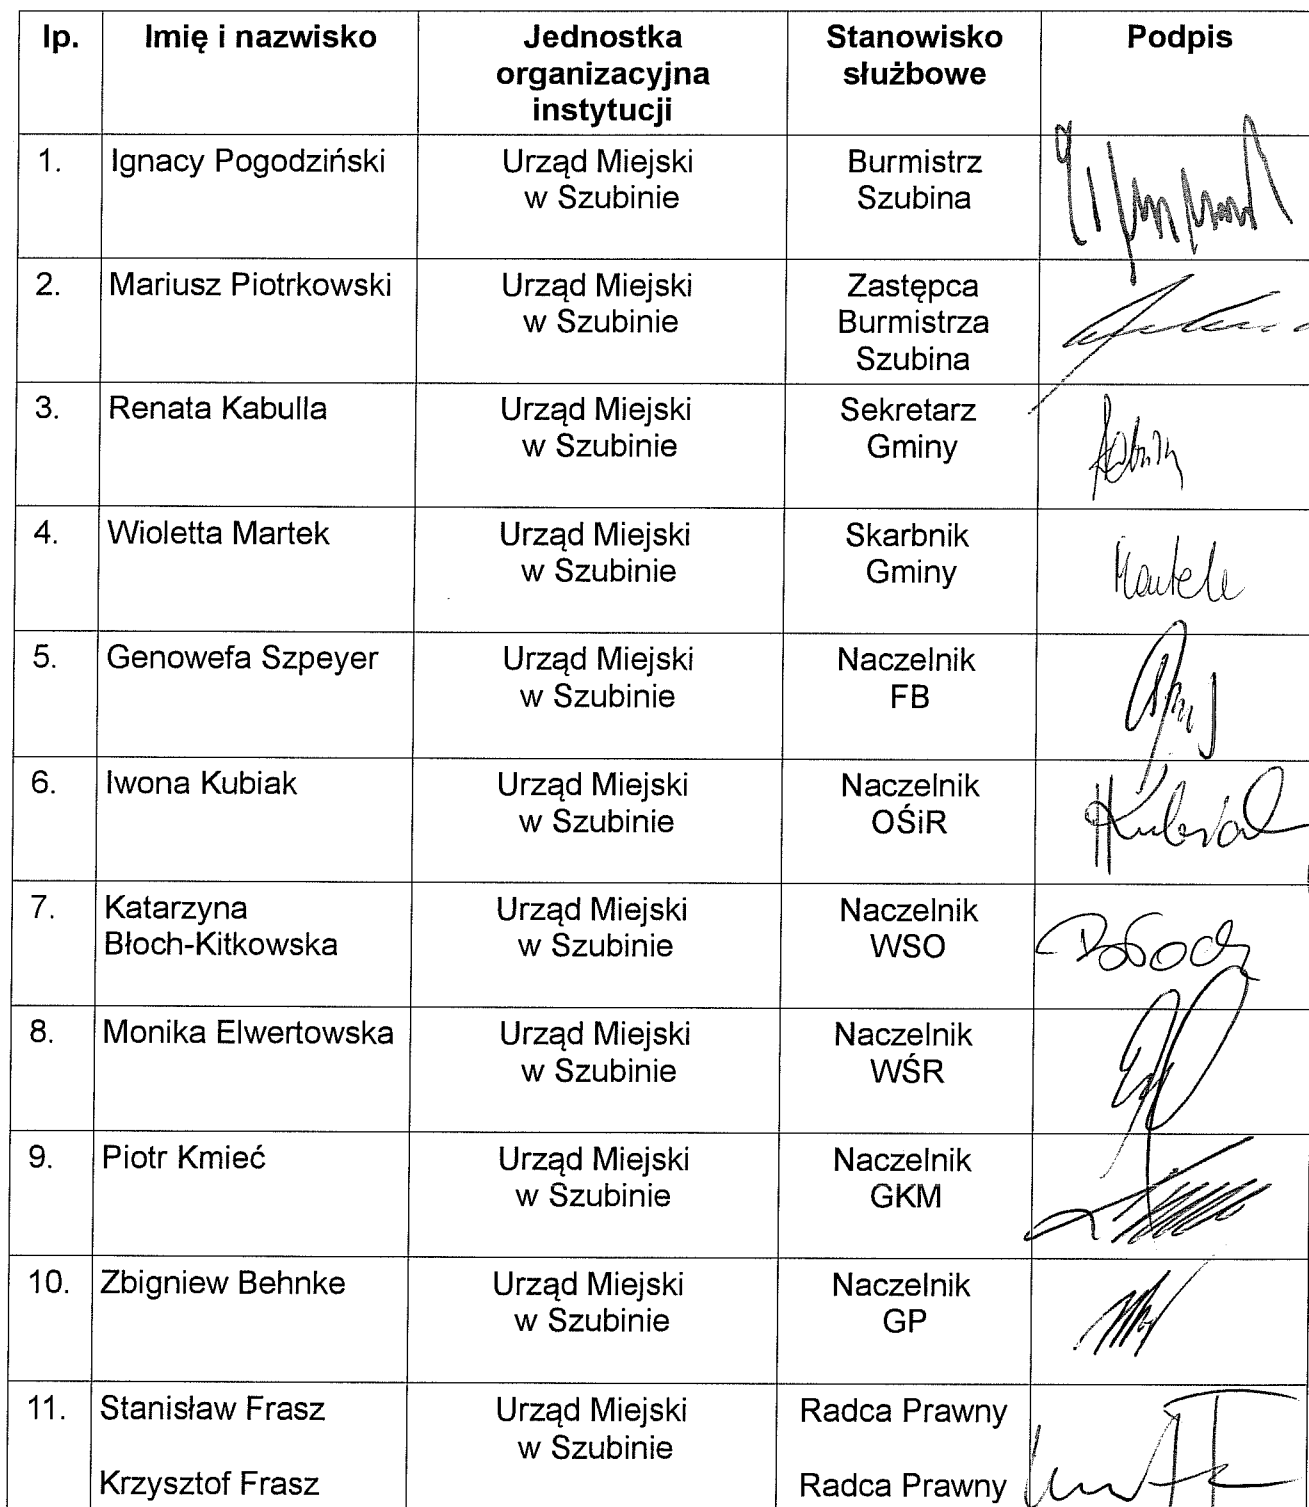 lp. Imię i nazwisko Jednostka organizacyjna instytucji Stanowisko służbowe Podpis
1. Ignacy Pogodziński Urząd Miejski w Szubinie Burmistrz Szubina
2. Mariusz Piotrkowski Urząd Miejski w Szubinie Zastępca Burmistrza Szubina
3. Renata Kabulla Urząd Miejski w Szubinie Sekretarz Gminy
4. Wioletta Martek Urząd Miejski w Szubinie Skarbnik Gminy Martek
5. Genowefa Szpeyer Urząd Miejski w Szubinie Naczelnik FB
6. Iwona Kubiak Urząd Miejski w Szubinie Naczelnik OŚiR Kubiak
7. Katarzyna Błoch-Kitkowska Urząd Miejski w Szubinie Naczelnik WSO
8. Monika Elwertowska Urząd Miejski w Szubinie Naczelnik WŚR
9. Piotr Kmieć Urząd Miejski w Szubinie Naczelnik GKM
10. Zbigniew Behnke Urząd Miejski w Szubinie Naczelnik GP
11. Stanisław Frasz Urząd Miejski w Szubinie Radca Prawny
Krzysztof Frasz Radca Prawny